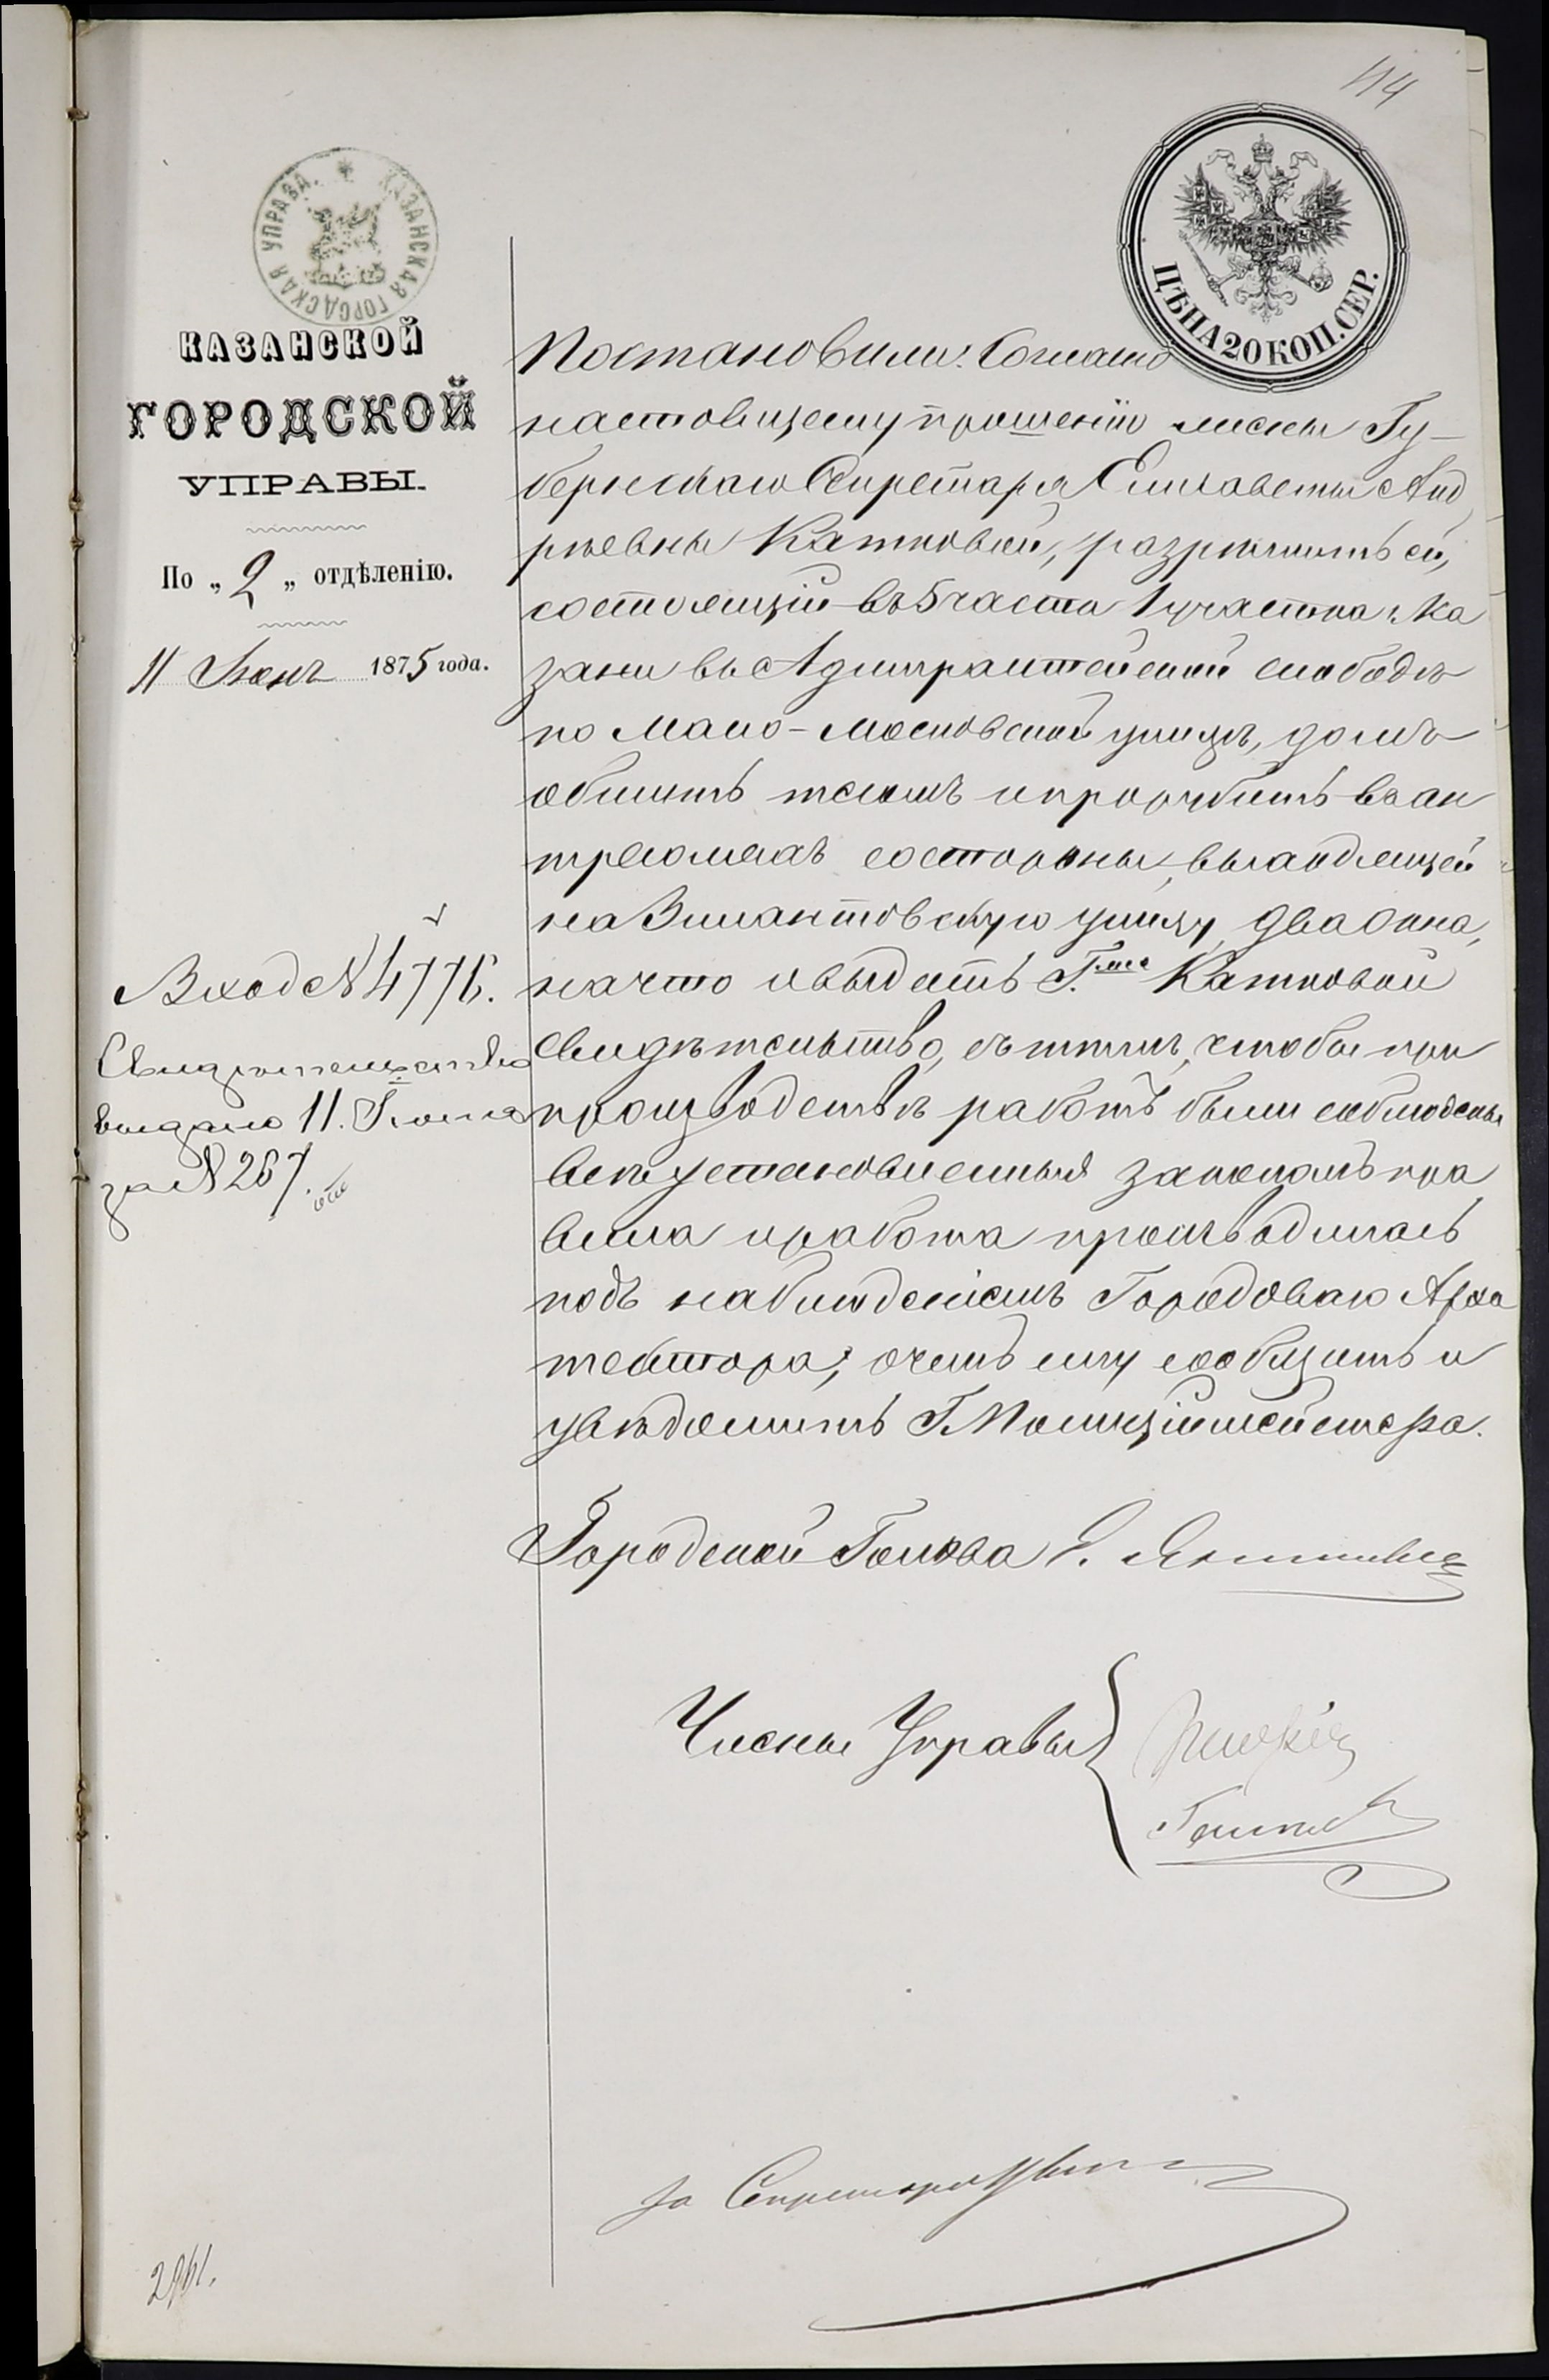 114
КАЗАНСКАЯ ГОРОДСКАЯ УПРАВА.
ЦѢНА 20 КОП. СЕР.
КАЗАНСКОЙ
ГОРОДСКОЙ
УПРАВЫ.
По „2„ отдѣленію.
11 Іюня 1875 года.
Вход № 4776.
Свидѣтельство
выдано 11. Іюня
за № 267.
Постановили: Согласно
настоящему прошенію жены Гу-
бернскаго Секретаря Елизаветы Анд
рѣевны Катковой, разрѣшить ей,
состоящій въ 5 части 1 участка г. Ка
зани въ Адмиралтейской слободѣ
по Мало-Московской улицѣ, домъ
обшить тесомъ и прорубить въ ан
тресоляхъ со стороны, выходящей
на Зилантовскую улицу, два окна,
на что и выдать Г.жѣ Катковой
свидѣтельство, съ тѣмъ, чтобы при
производствѣ работъ были соблюдены
всѣ установленныя закономъ пра
вила и работа производилась
подъ наблюденіемъ Городоваго Архи
тектора; о чемъ ему сообщить и
увѣдомить Г. Полиціймейстера.
Городской Голова Э. Янишевскій
Члены Управы
За Секретаря